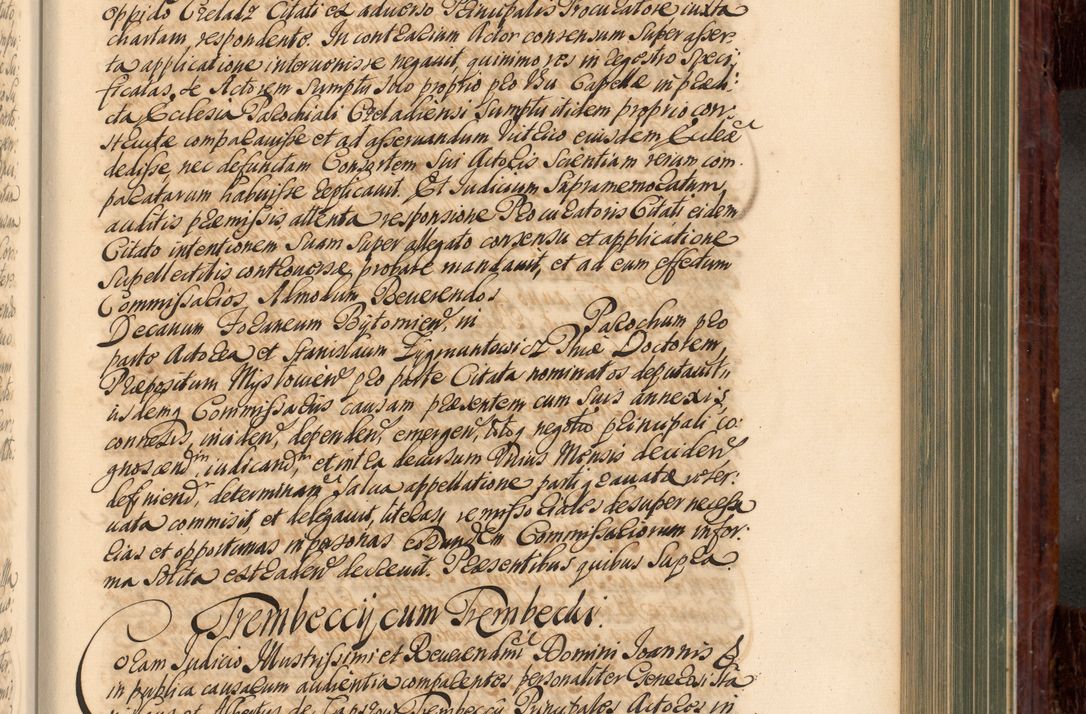 oppido Czeladz Citati ex adverso Principalis Procuratore iuxta
chartam respondento. In contrarium Actor consensum super asser:
ta applicatione intervenisse negavit, quinimo res in regestro speci
ficatas, se Actorem Sumptu suo proprio pro Usu Capellæ in præd:
cta Ecclesia Parochiali Czeladiensi Sumptu itidem proprio con
structæ comparavisse et ad asservandum Vitrico eiusdem Ecclæ
dedisse, nec defunctam Consortem sui Actoris Scientiam rerum com
paratarum habuisse replicavit. Et Judicium Supramemoratum,
auditis præmissis, attenta responsione Procuratoris Citati eidem
Citato intentionem suam super allegato consensu et applicatione
Supellectilis controversæ, probare mandavit, et ad eum effectum
Commissarios, Admodum Reverendos
Decanum Foraneum Bytomien, ni Parochum pro
parte Actorea et Stanislaum Zygmuntowicz Phiæ Doctorem,
Præpositum Myslovien pro parte Citata nominatos deputavit,
iisdemq Commissariis causam præsentem cum suis annexis
connexis, inciden, dependen, emergen, totoq negotio principali co:
gnoscend, iudicand, et intra decursum Unius Mensis deciden
definiend, determinan salva appellatione parti gravatæ reser:
vata commisit, et delegavit, literas remissoriales desuper necessa
rias et opportunas in personas eorundem Commissariorum in for:
ma solita extraden decrevit. Præsentibus quibus supra.
Trembeccy cum Trembecki.
Coram Judicio Illustrissimi et Reverendmi Domini Joannis
in publica causarum audientia comparentes personaliter Generosi Sta
nislaus et Albertus de Trembeccy Principales Actores in